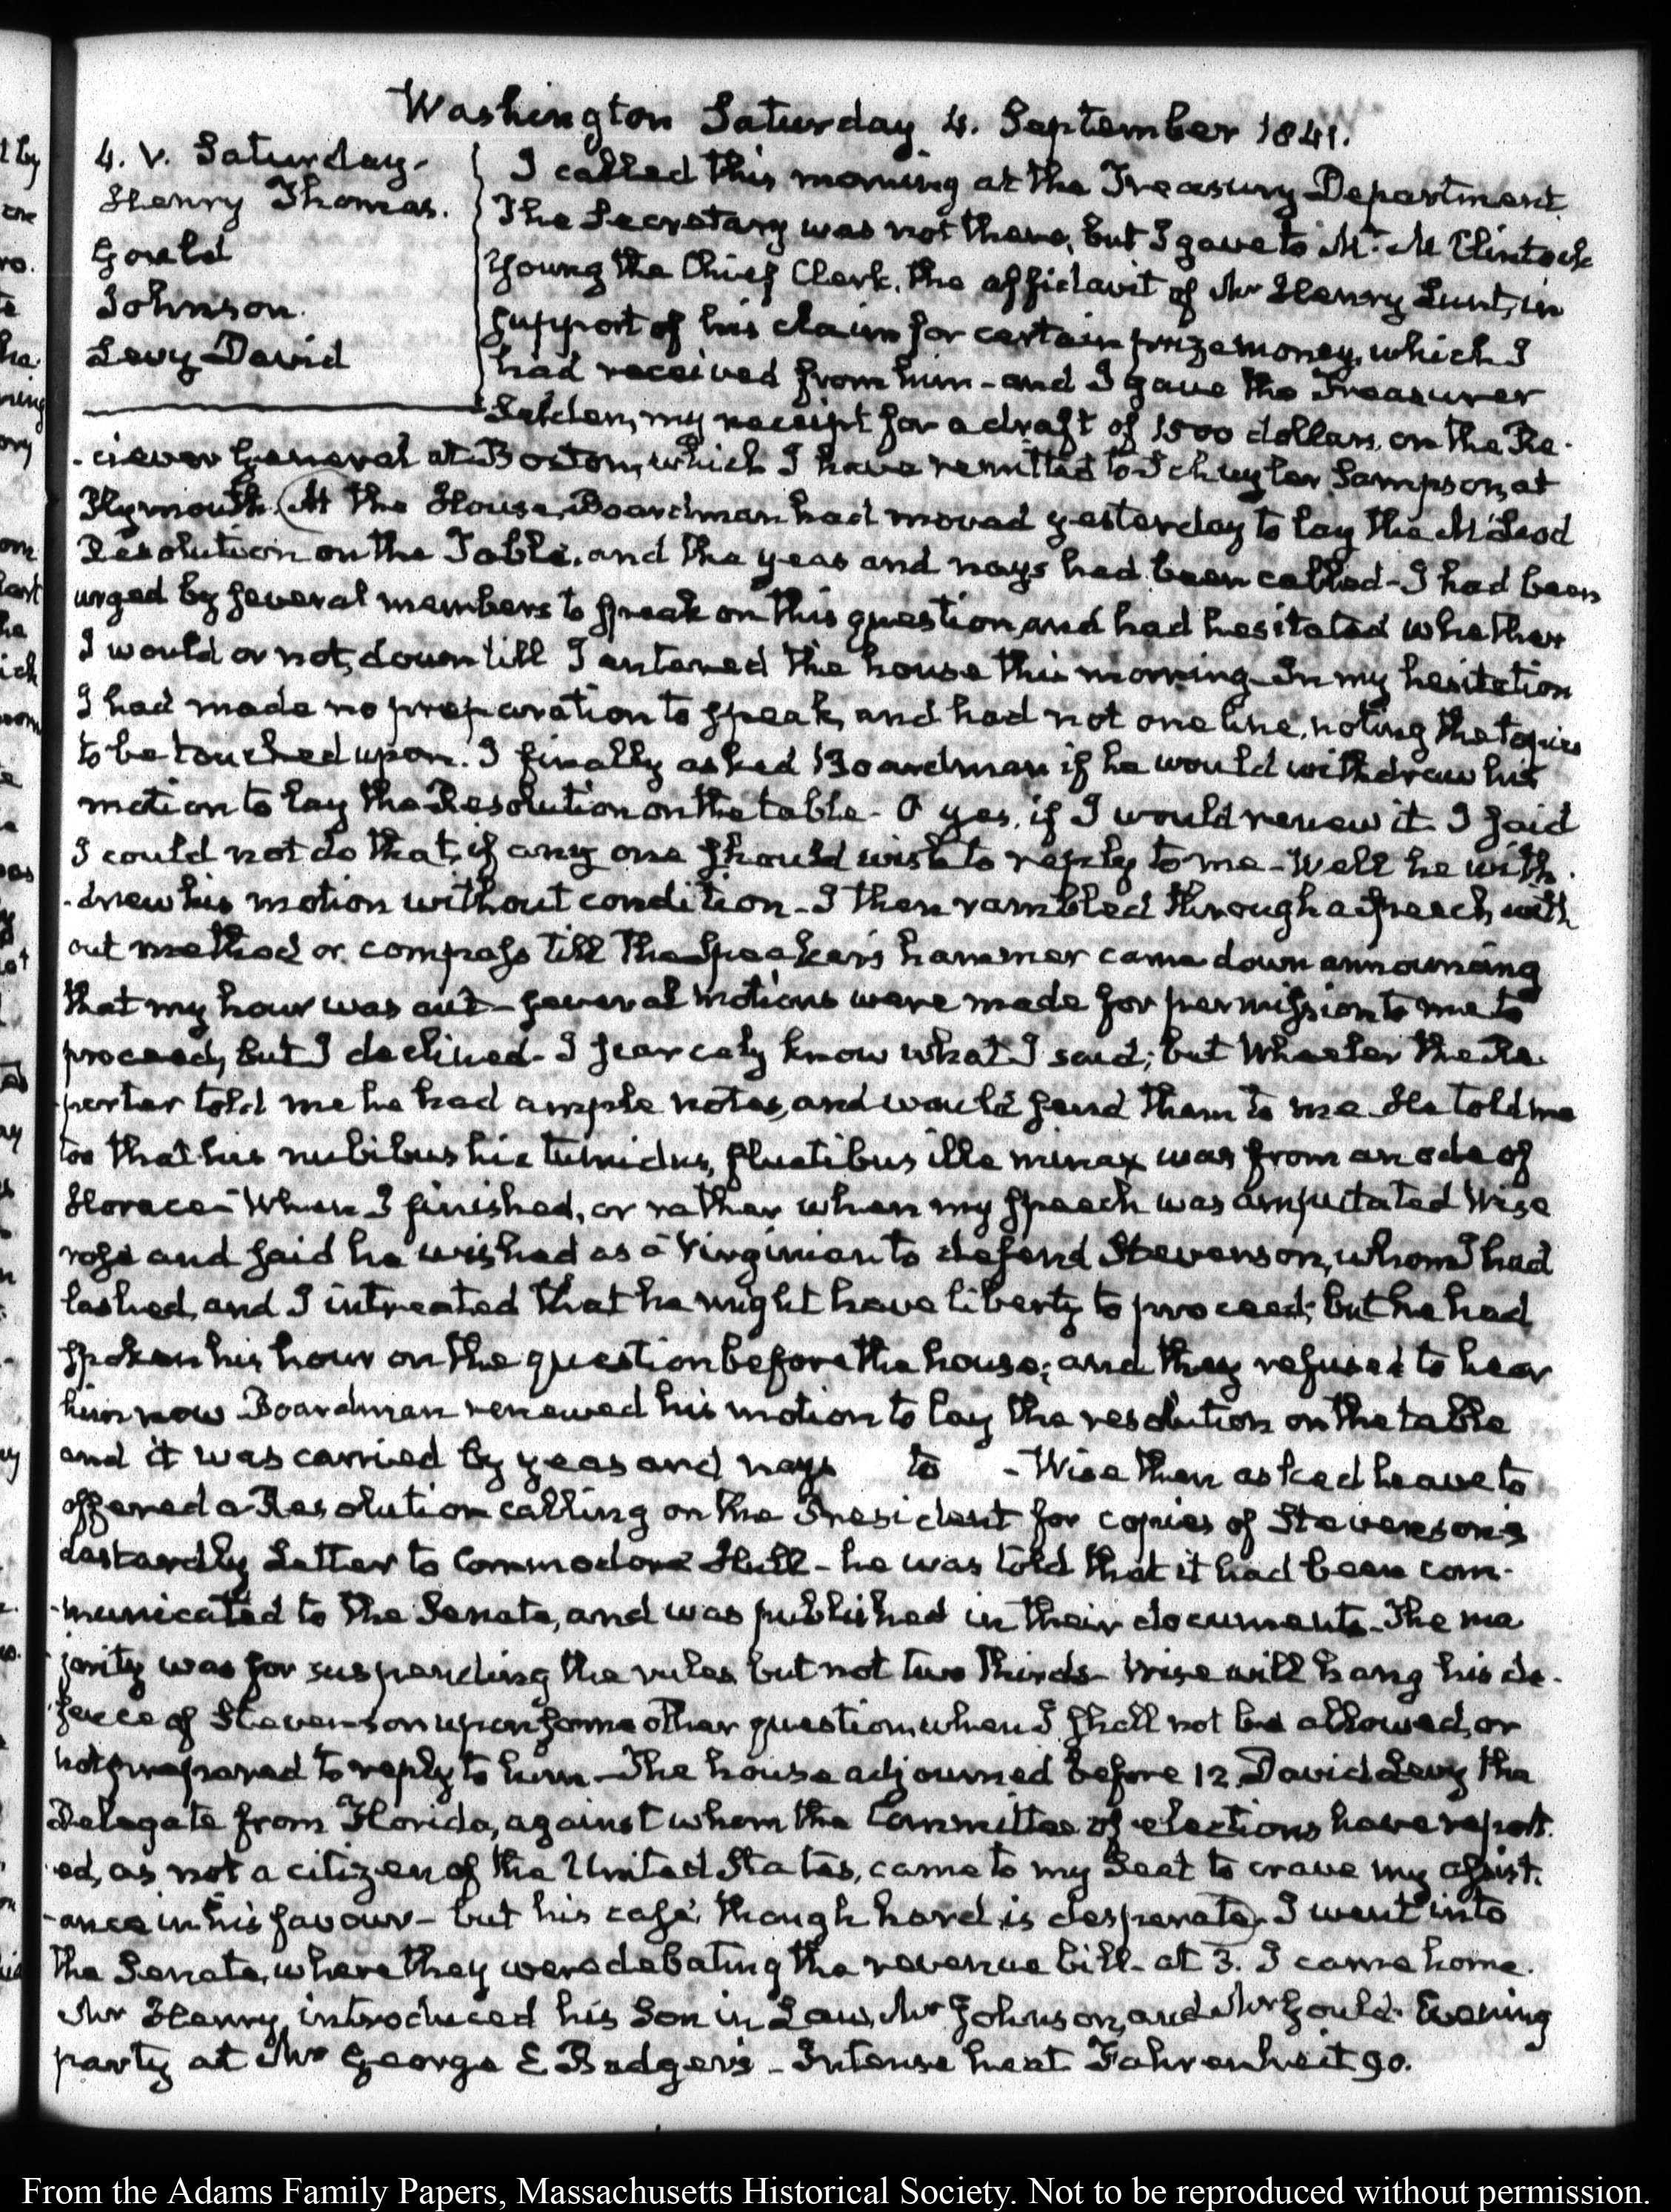 Washington Saturday 4. September 1841.
4. V. Saturday.
Henry Thomas.
Gould
Johnson.
Levy David
I called this morning at the Treasury Department
The Secretary was not there, but I gave to Mr. McClintock
Young the Chief Clerk, the affidavit of Mr Henry Lunt, in
support of his claim for certain prize money, which I
had received from him - and I gave the Treasurer
Selden, my receipt for a draft of 1500 dollars, on the Re-
-ciever General at Boston, which I have remitted to Schuyler Sampson, at
Plymouth. (At the House, Boardman had moved yesterday to lay the McLeod
Resolution on the Table, and the yeas and nays had been called - I had been
urged by several members to speak on this question, and had hesitated whether
I would or not, down till I entered the house this morning. In my hesitation
I had made no preparation to speak, and had not one line, noting the topics
to be touched upon. I finally asked Boardman if he would withdraw his
motion to lay the Resolution on the table - O yes, if I would renew it. I said
I could not do that, if any one should wish to reply to me - Well he with-
-drew his motion without condition - I then rambled through a speech, with
out method or compass till the Speaker's hammer came down announcing
that my hour was out - several motions were made for permission to me to
proceed, but I declined - I scarcely know what I said; but Wheeler the Re-
-porter told me he had ample notes, and would send them to me. He told me
too that his nubibus hic tumidus, fluctibus ille minax was from an ode of
Horace - When I finished, or rather when my speech was amputated Wise
rose and said he wished as a Virginian to defend Stevenson, whom I had
lashed, and I intreated that he might have liberty to proceed; but he had
spoken his hour on the question before the house; and they refused to hear
him now Boardman renewed his motion to lay the resolution on the table
and it was carried by yeas and nays to - Wise then asked leave to
offered a Resolution calling on the President for copies of Stevenson's
dastardly Letter to Commodore Hull - he was told that it had been com-
-municated to the Senate, and was published in their documents - The ma
jority was for suspending the rules but not two thirds - Wise will hang his de-
-fence of Stevenson upon some other question, when I shall not be allowed, or
not prepared to reply to him - The house adjourned before 12. David Levy the
Delegate from Florida, against whom the Committee of elections have report-
-ed, as not a citizen of the United States, came to my Seat to crave my assist-
-ance in his favour - but his case, though hard, is desperate). I went into
the Senate, where they were debating the revenue bill - at 3. I came home.
Mr Henry introduced his Son in Law, Mr Johnson, and Mr Gould. Evening
party at Mr George E Badger's - Intense heat. Fahrenheit 90.
From the Adams Family Papers, Massachusetts Historical Society. Not to be reproduced without permission.